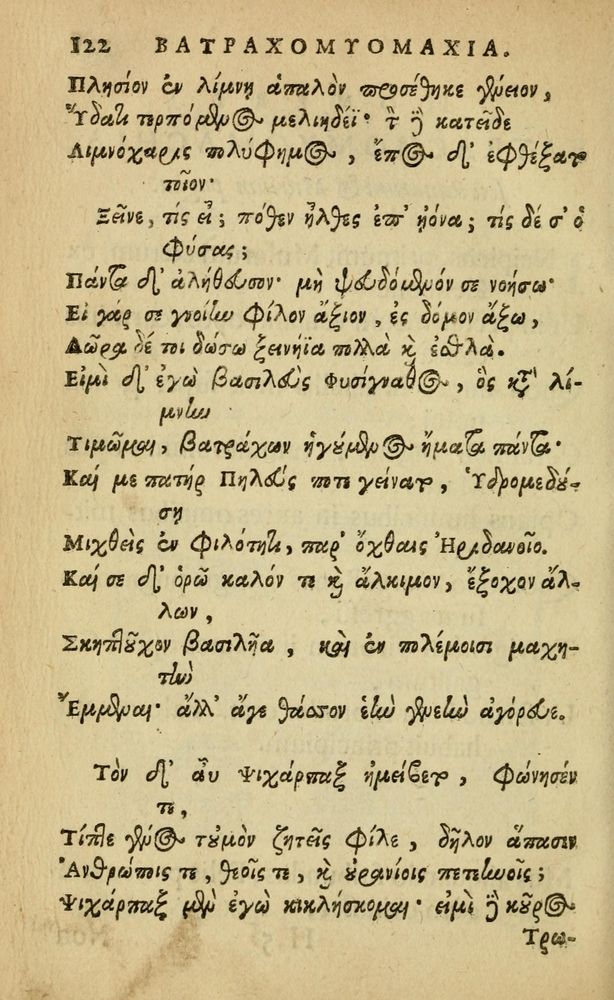 122 ΒΑΤΡΑΧΟΜΥΟΜΑΧΙΑ.
Πλησίον ἐν λίμνῃ ἁπαλὸν προσέθηκε γένειον,
Ὕδατι τερπόμενος μελιηδέϊ· τὸν δὲ κατεῖδε
Λιμνόχαρις πολύφημος, ἔπος δ' ἐφθέξατο
τοῖον·
Ξεῖνε, τίς εἶ; πόθεν ἦλθες ἐπ' ἠόνα; τίς δέ σ' ὁ
φύσας;
Πάντα δ' ἀλήθευσον· μὴ ψευδόμενόν σε νοήσω·
Εἰ γάρ σε γνοίην φίλον ἄξιον, ἐς δόμον ἄξω,
Δῶρα δέ τοι δώσω ξεινήϊα πολλὰ καὶ ἐσθλά.
Εἰμὶ δ' ἐγὼ βασιλεὺς Φυσίγναθος, ὃς κατὰ λί-
μνην
Τιμῶμαι, βατράχων ἡγούμενος ἤματα πάντα·
Καί με πατὴρ Πηλεύς ποτε γείνατο, Ὑδρομεδού-
σῃ
Μιχθεὶς ἐν φιλότητι, παρ' ὄχθαις Ἠριδανοῖο.
Καί σε δ' ὁρῶ καλόν τε καὶ ἄλκιμον, ἔξοχον ἄλ-
λων,
Σκηπτοῦχον βασιλῆα, καὶ ἐν πολέμοισι μαχη-
τὴν
Ἔμμεναι· ἀλλ' ἄγε θᾶσσον ἑὴν γενεὴν ἀγόρευε.
Τὸν δ' αὖ Ψιχάρπαξ ἠμείβετο, φώνησέν
τε,
Τίπτε γένος τοὐμὸν ζητεῖς φίλε, δῆλον ἅπασιν
Ἀνθρώποις τε, θεοῖς τε, καὶ οὐρανίοις πετεηνοῖς;
Ψιχάρπαξ μὲν ἐγὼ κικλήσκομαι· εἰμὶ δὲ κοῦρος
Τρω-